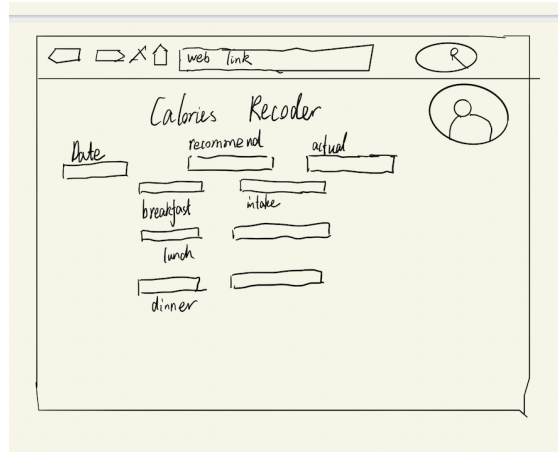 web link
R
Calories Recoder
Date recommend actual
breakfast intake
lunch
dinner